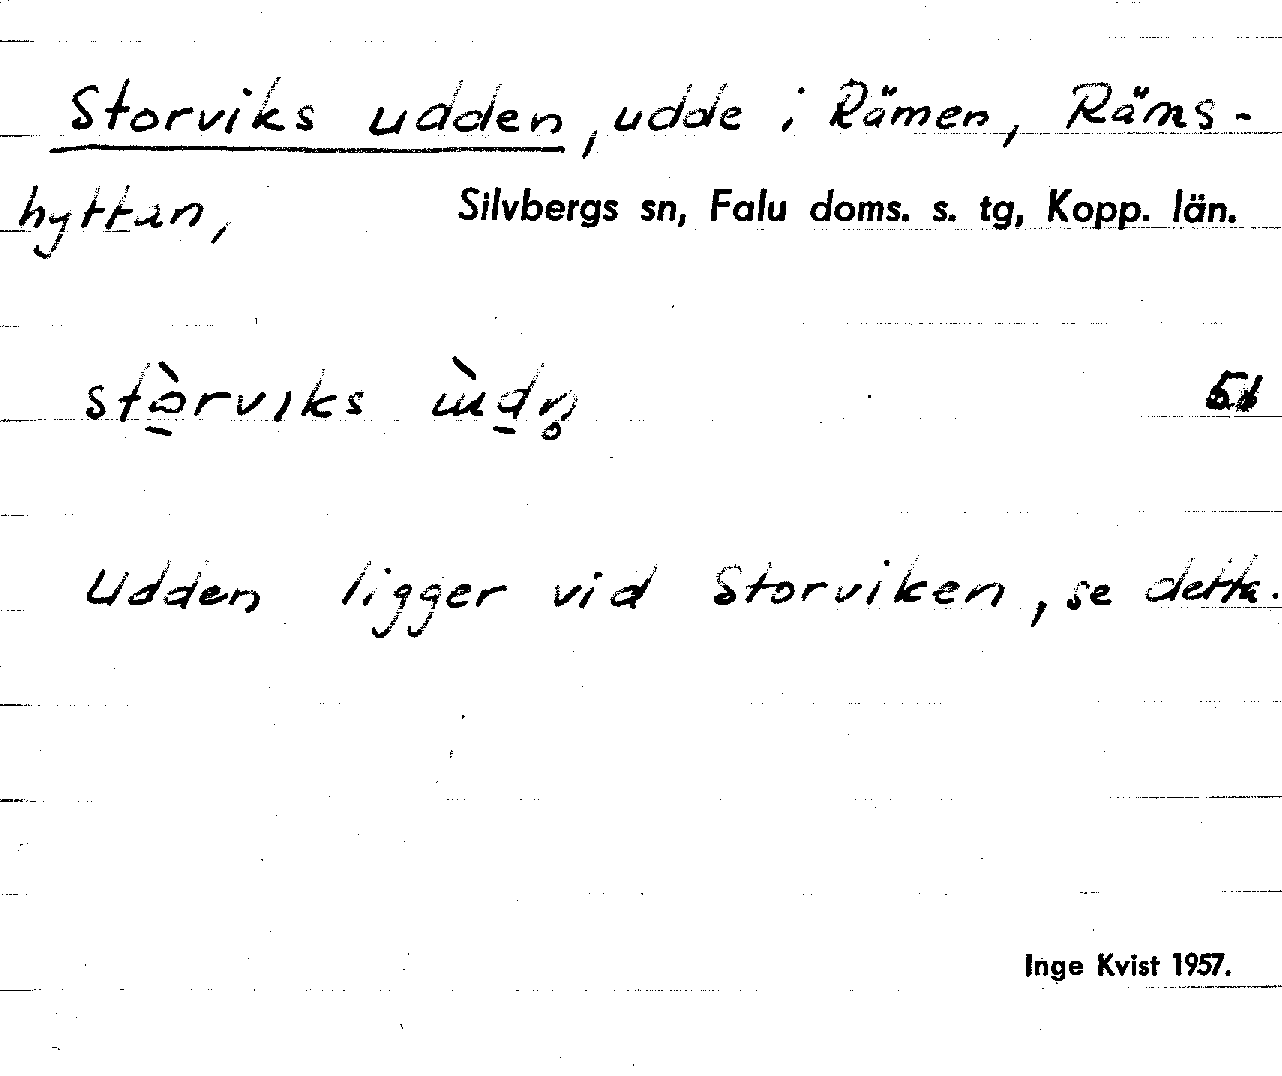 Storviks udden, udde i Rämen, Räms-
hyttan, Silvbergs sn, Falu doms. s. tg, Kopp. län.
stòrviks
Udden ligger vid Storviken, se detta.
Inge Kvist 1957.